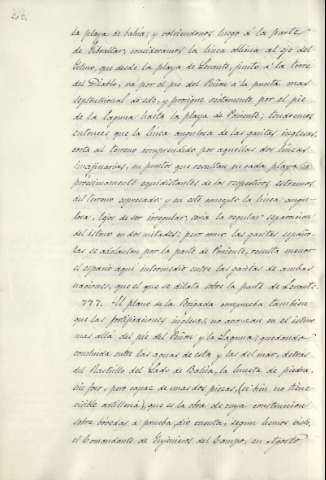 la playa de bahía; y volviéndonos luego á la parte
de Gibraltar, consideramos la línea oblicua al eje del
Istmo, que desde la playa de Levante, junto á la Torre
del Diablo, va por el pié del Peñon á la punta mas
septentrional de este, y prosigue rectamente por el pié
de la laguna hasta la playa de Poniente; tendremos
entonces que la línea angulosa de las garitas inglesas,
corta al terreno comprendido por aquellas dos líneas
imaginarias, en puntos que resultan en cada playa
proximamente equidistantes de los respectivos estremos
del terreno espresado: y en este concepto la línea angu-
losa, lejos de ser irregular, sería la regular separacion
del Istmo en dos mitades; pero como las garitas españo-
las se adelantan por la parte de Poniente, resulta menor
el espacio aqui intermedio entre las garitas de ambas
naciones, que el que se dilata sobre la parte de Levante.
777. El plano de la Brigada comprueba tambien
que las fortificaciones inglesas, no avanzan en el istmo
mas allá del pié del Peñon y la Laguna; quedando
concluida entre las aguas de esta y las del mar, detras
del Rastrillo del Lado de Bahía, la luneta de piedra,
sin foso, pero capaz de unas dos piezas, (si bien no tiene
visible artillería), que es la obra de cuya construccion
sobre bóvedas á prueba, dió cuenta, segun hemos visto,
el Comandante de Ingenieros del Campo, en Agosto